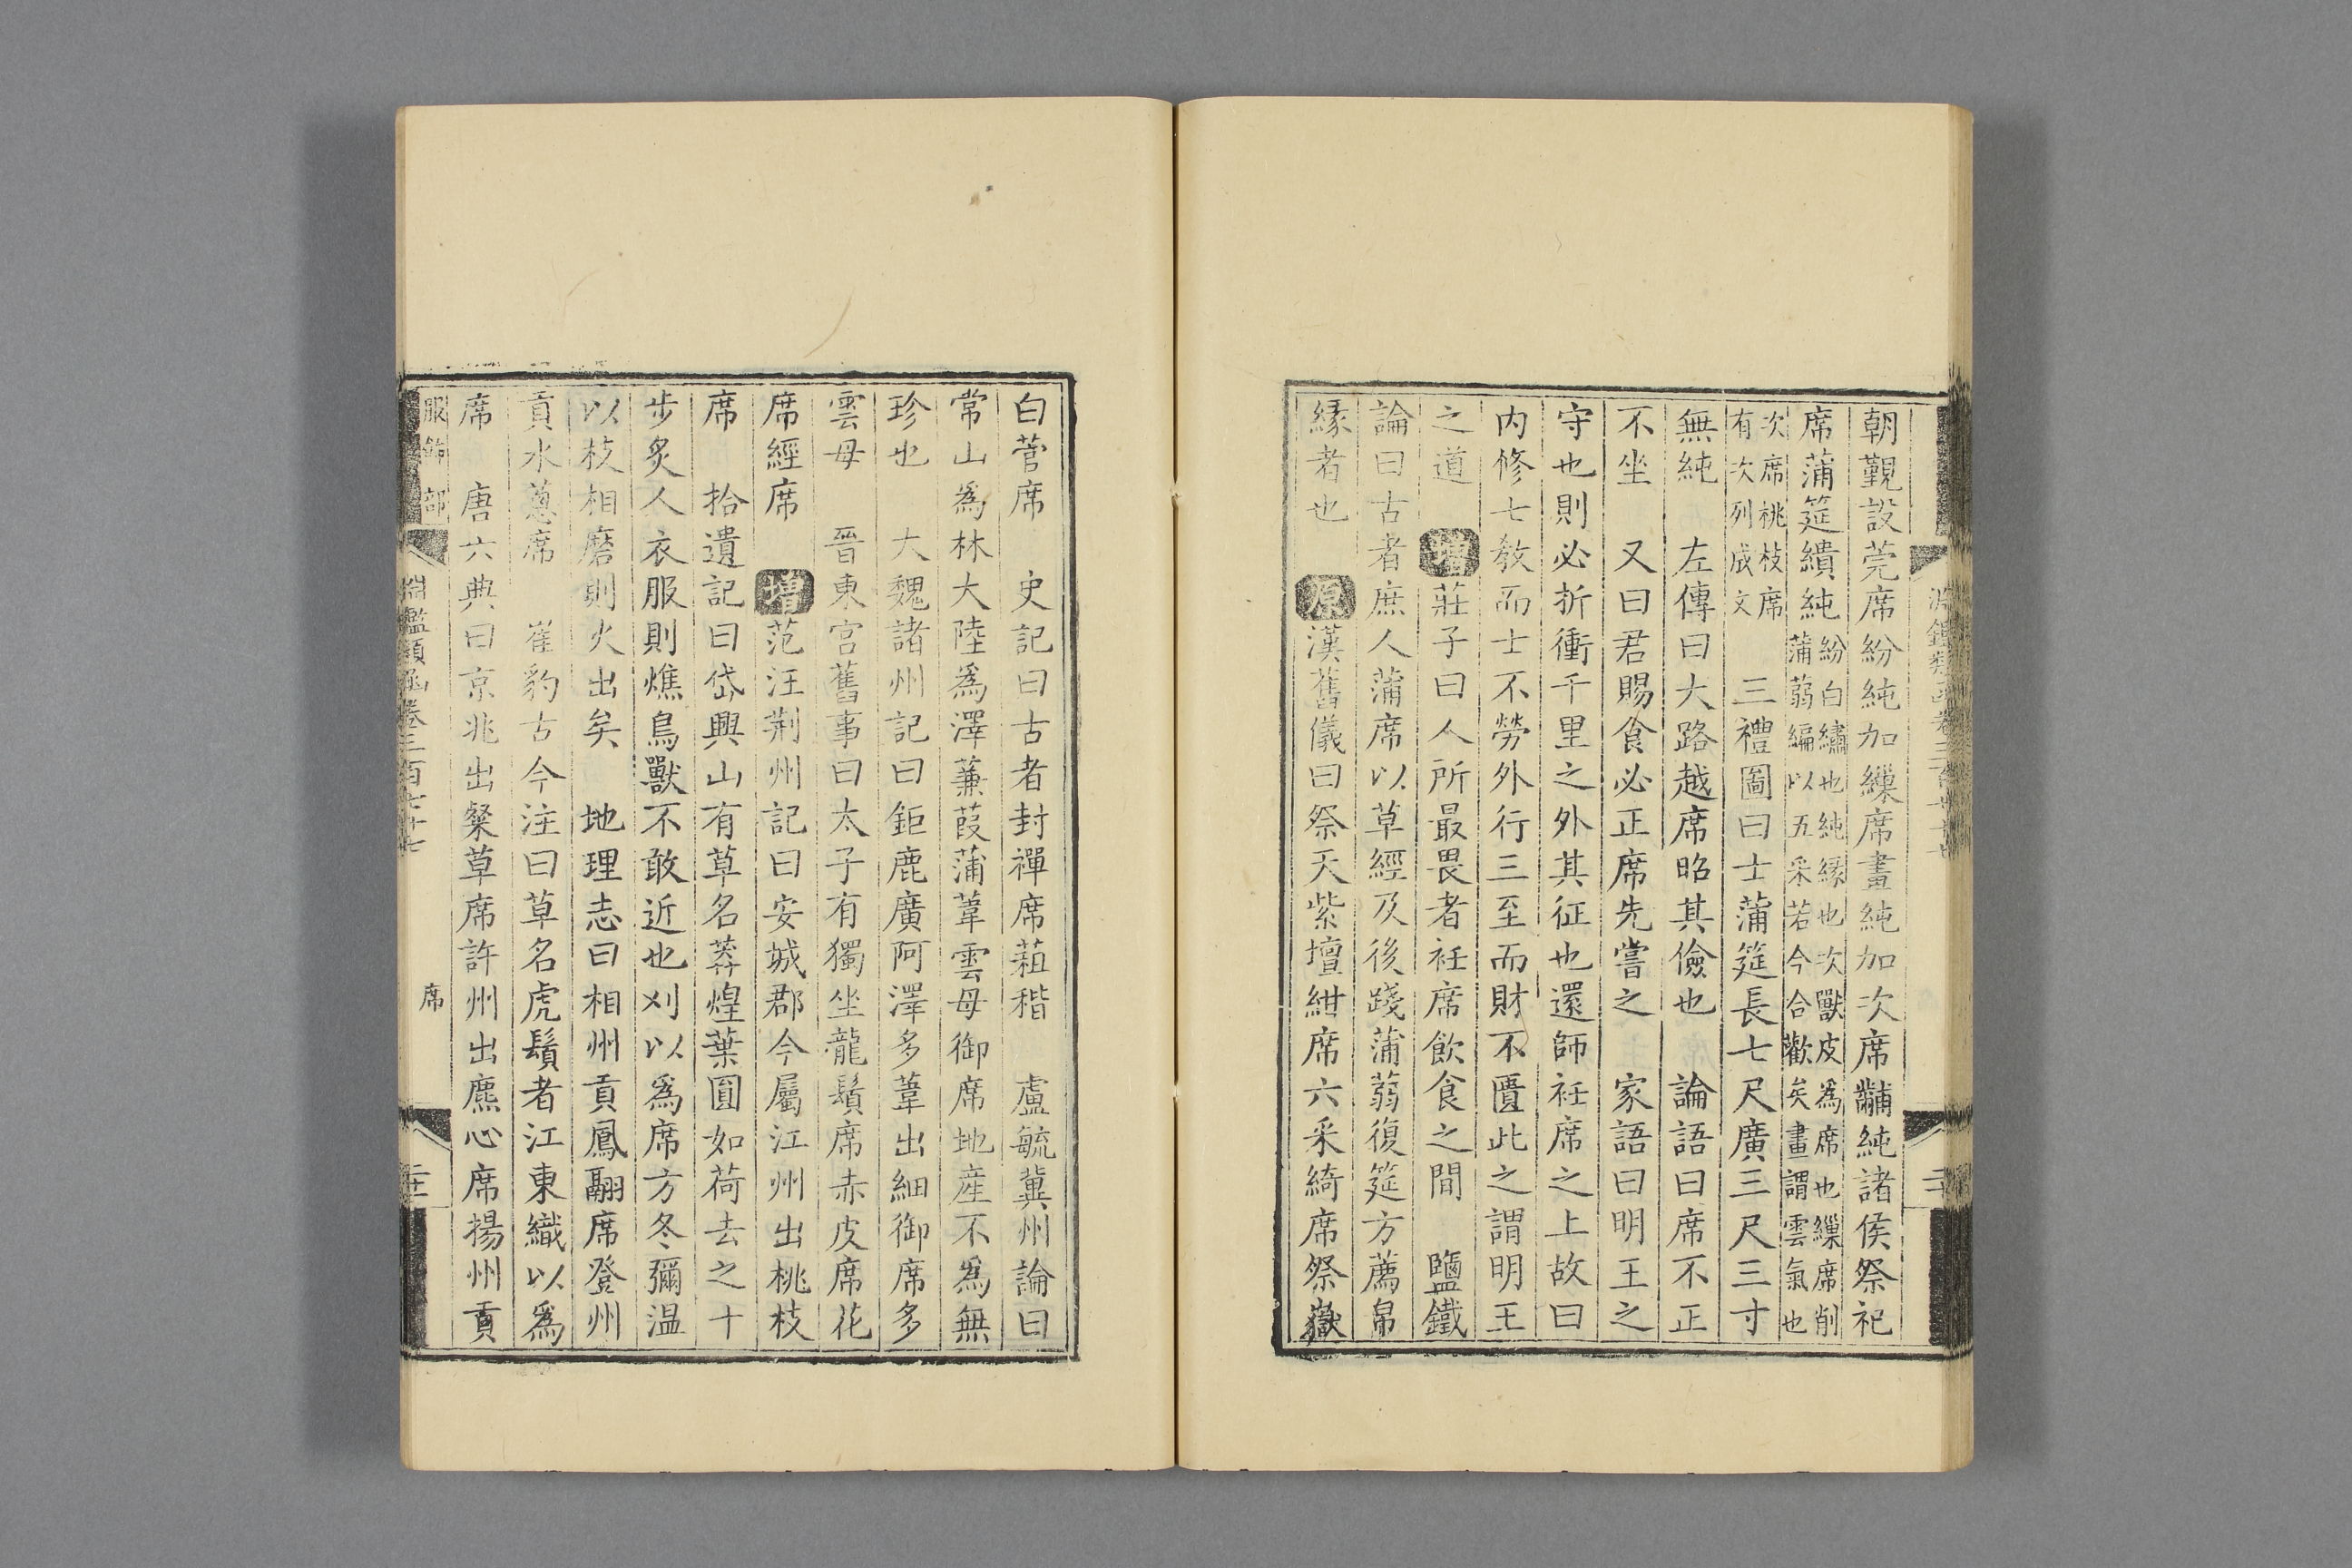 朝覲設莞席紛純加繅席畫純加次席黼純諸侯祭祀
席蒲筵繢純紛白繡也純緣也次獸皮爲席也繅席削
蒲蒻編以五采若今合歡矣畫謂雲氣也
次席桃枝席
有次列成文
三禮圖曰士蒲筵長七尺廣三尺三寸
無純 左傳曰大路越席昭其儉也 論語曰席不正
不坐 又曰君賜食必正席先嘗之 家語曰明王之
守也則必折衝千里之外其征也還師衽席之上故曰
内修七教而士不勞外行三至而財不匱此之謂明王
之道 增莊子曰人所最畏者衽席飲食之間 鹽鐵
論曰古者庶人蒲席以草經及後踐蒲蒻復筵方薦帛
緣者也 原漢舊儀曰祭天紫壇紺席六采綺席祭嶽
白菅席 史記曰古者封禪席葅稭 盧毓冀州論曰
常山爲林大陸爲澤蒹葭蒲葦雲母御席地産不爲無
珍也 大魏諸州記曰鉅鹿廣阿澤多葦出細御席多
雲母 晉東宮舊事曰太子有獨坐龍鬚席赤皮席花
席經席 增范汪荆州記曰安城郡今屬江州出桃枝
席 拾遺記曰岱輿山有草名莽煌葉圓如荷去之十
步炙人衣服則燋鳥獸不敢近也刈以爲席方冬彌温
以枝相磨則火出矣 地理志曰相州貢鳳翮席登州
貢水蔥席 崔豹古今注曰草名虎鬚者江東織以爲
席 唐六典曰京兆出粲草席許州出藨心席揚州貢
服飾部 淵鑑類函卷三百七十七 席